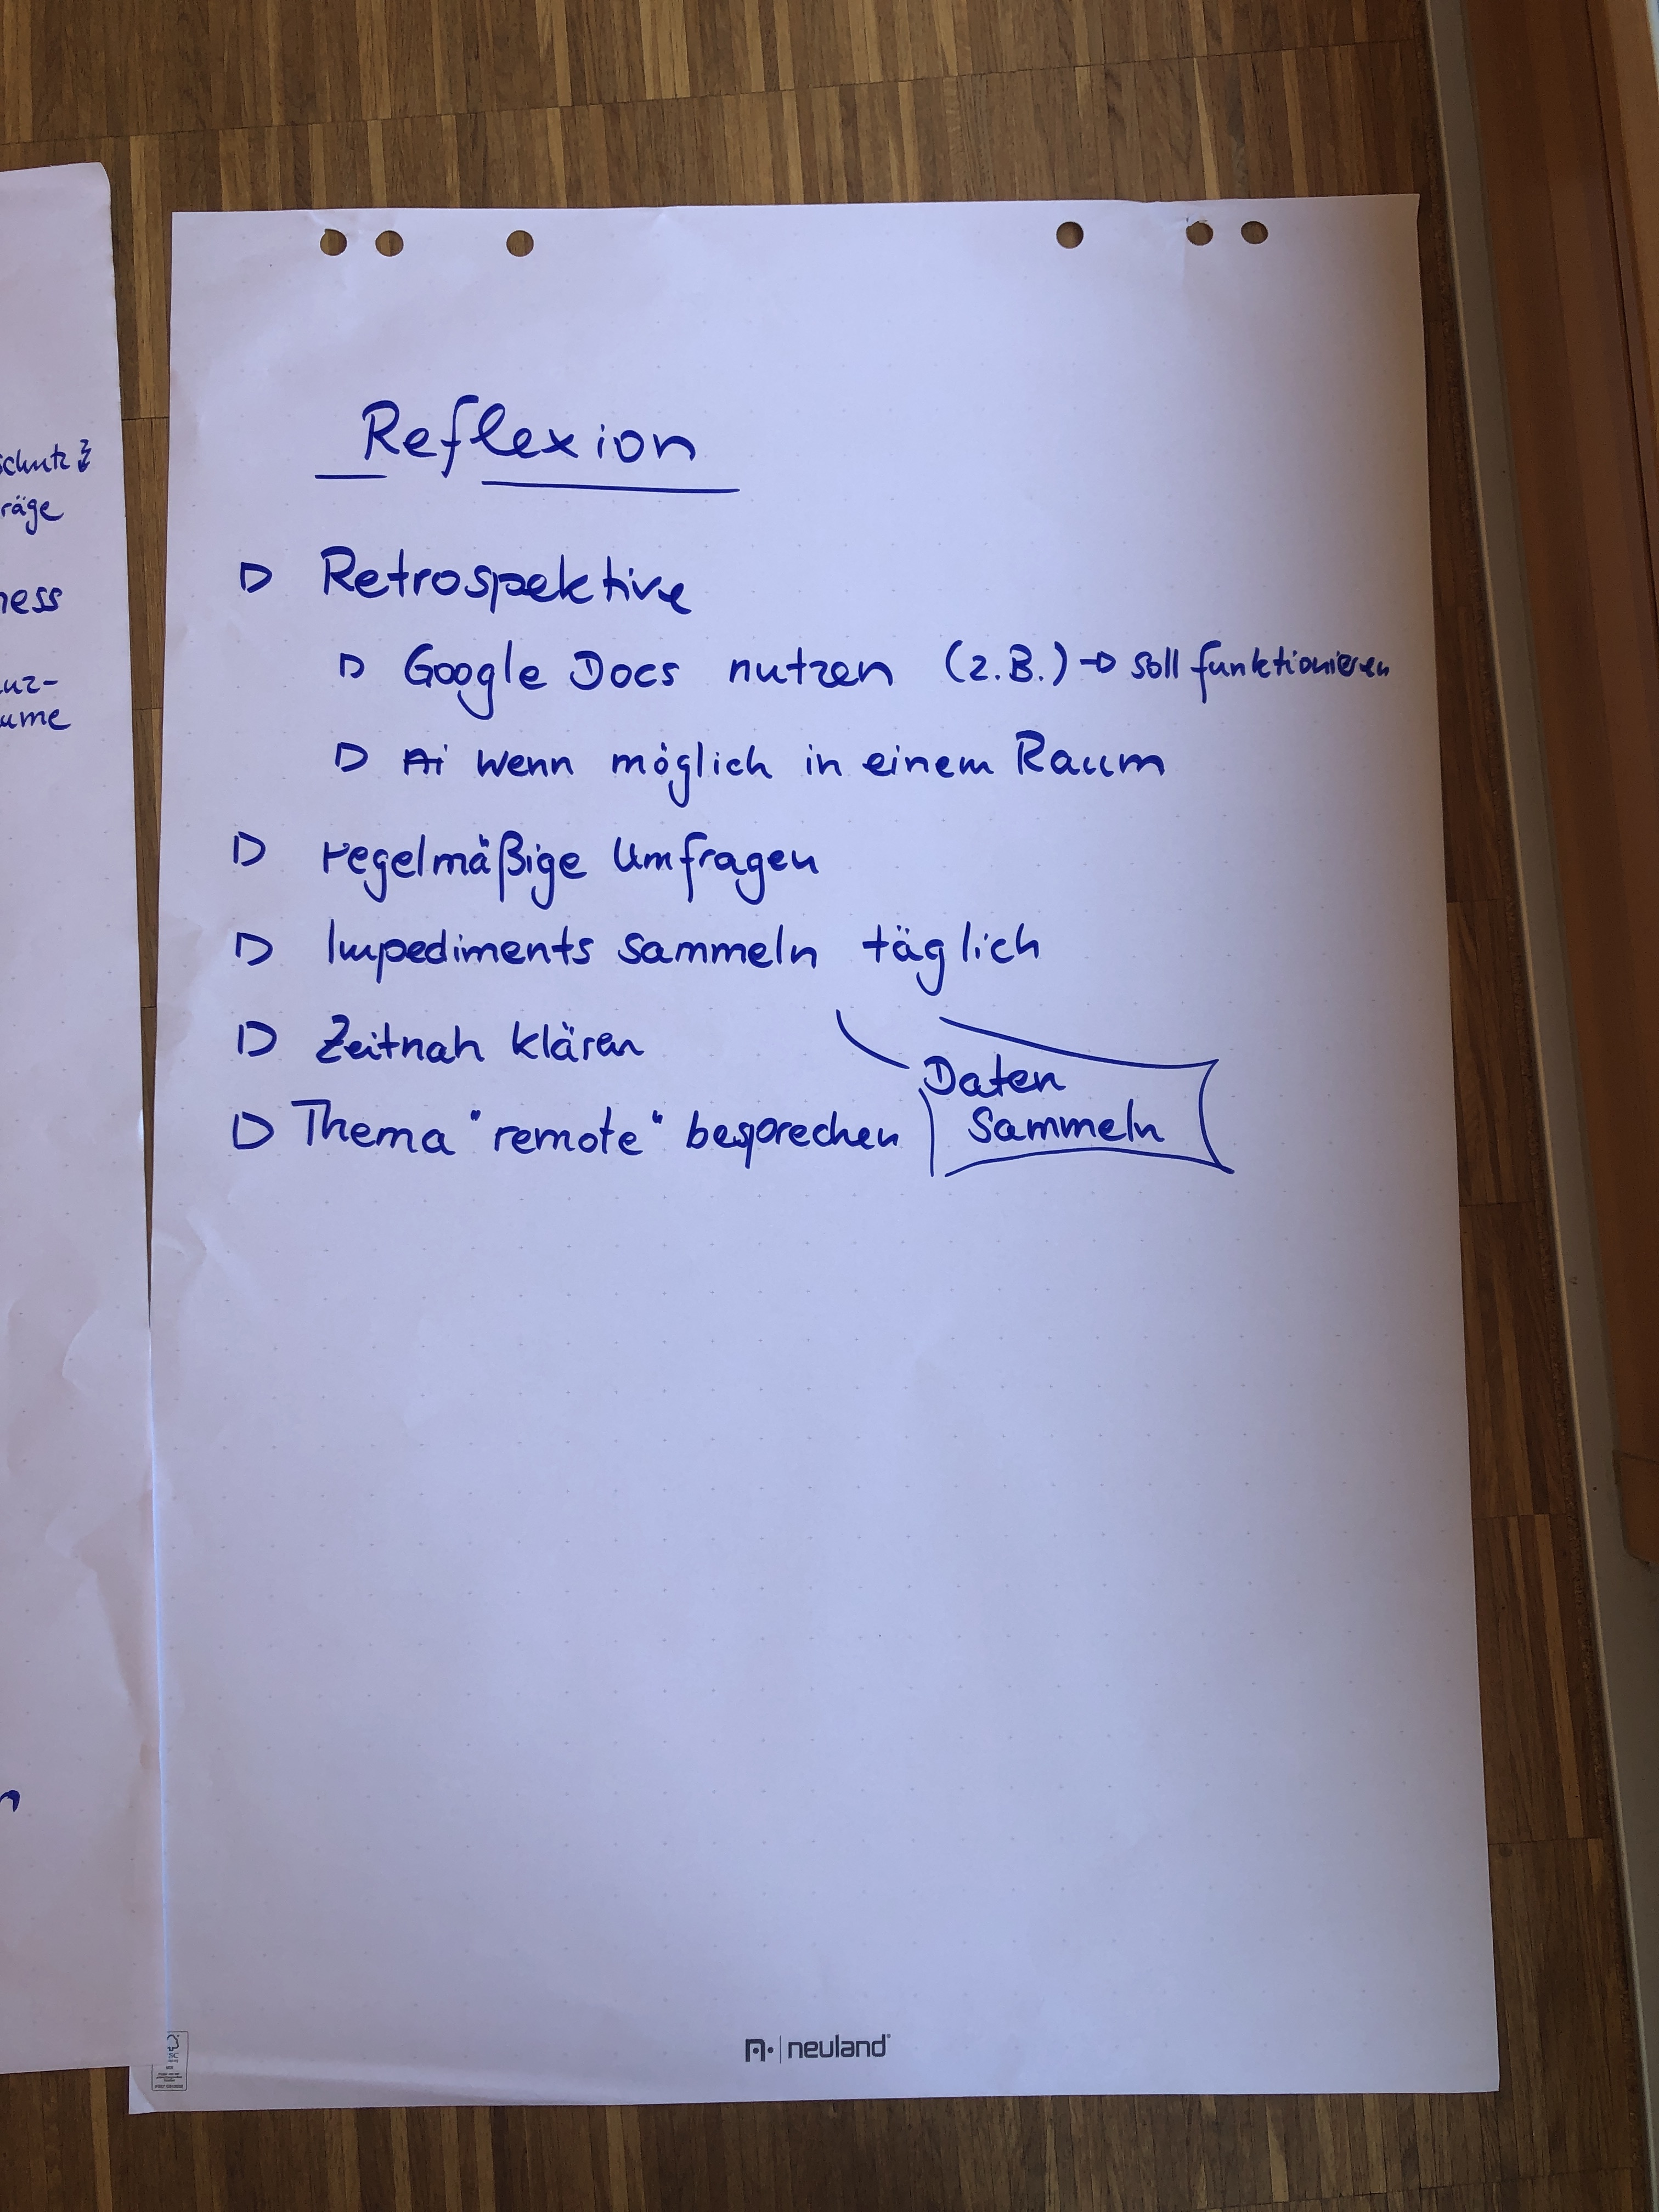 schutz
räge
ness
nz-
ume
Reflexion
Retrospektive
Google Docs nutzen (z.B.) → soll funktionieren
wenn möglich in einem Raum
regelmäßige Umfragen
Impediments sammeln täglich
Zeitnah klären
Daten
Sammeln
Thema "remote" besprechen
neuland